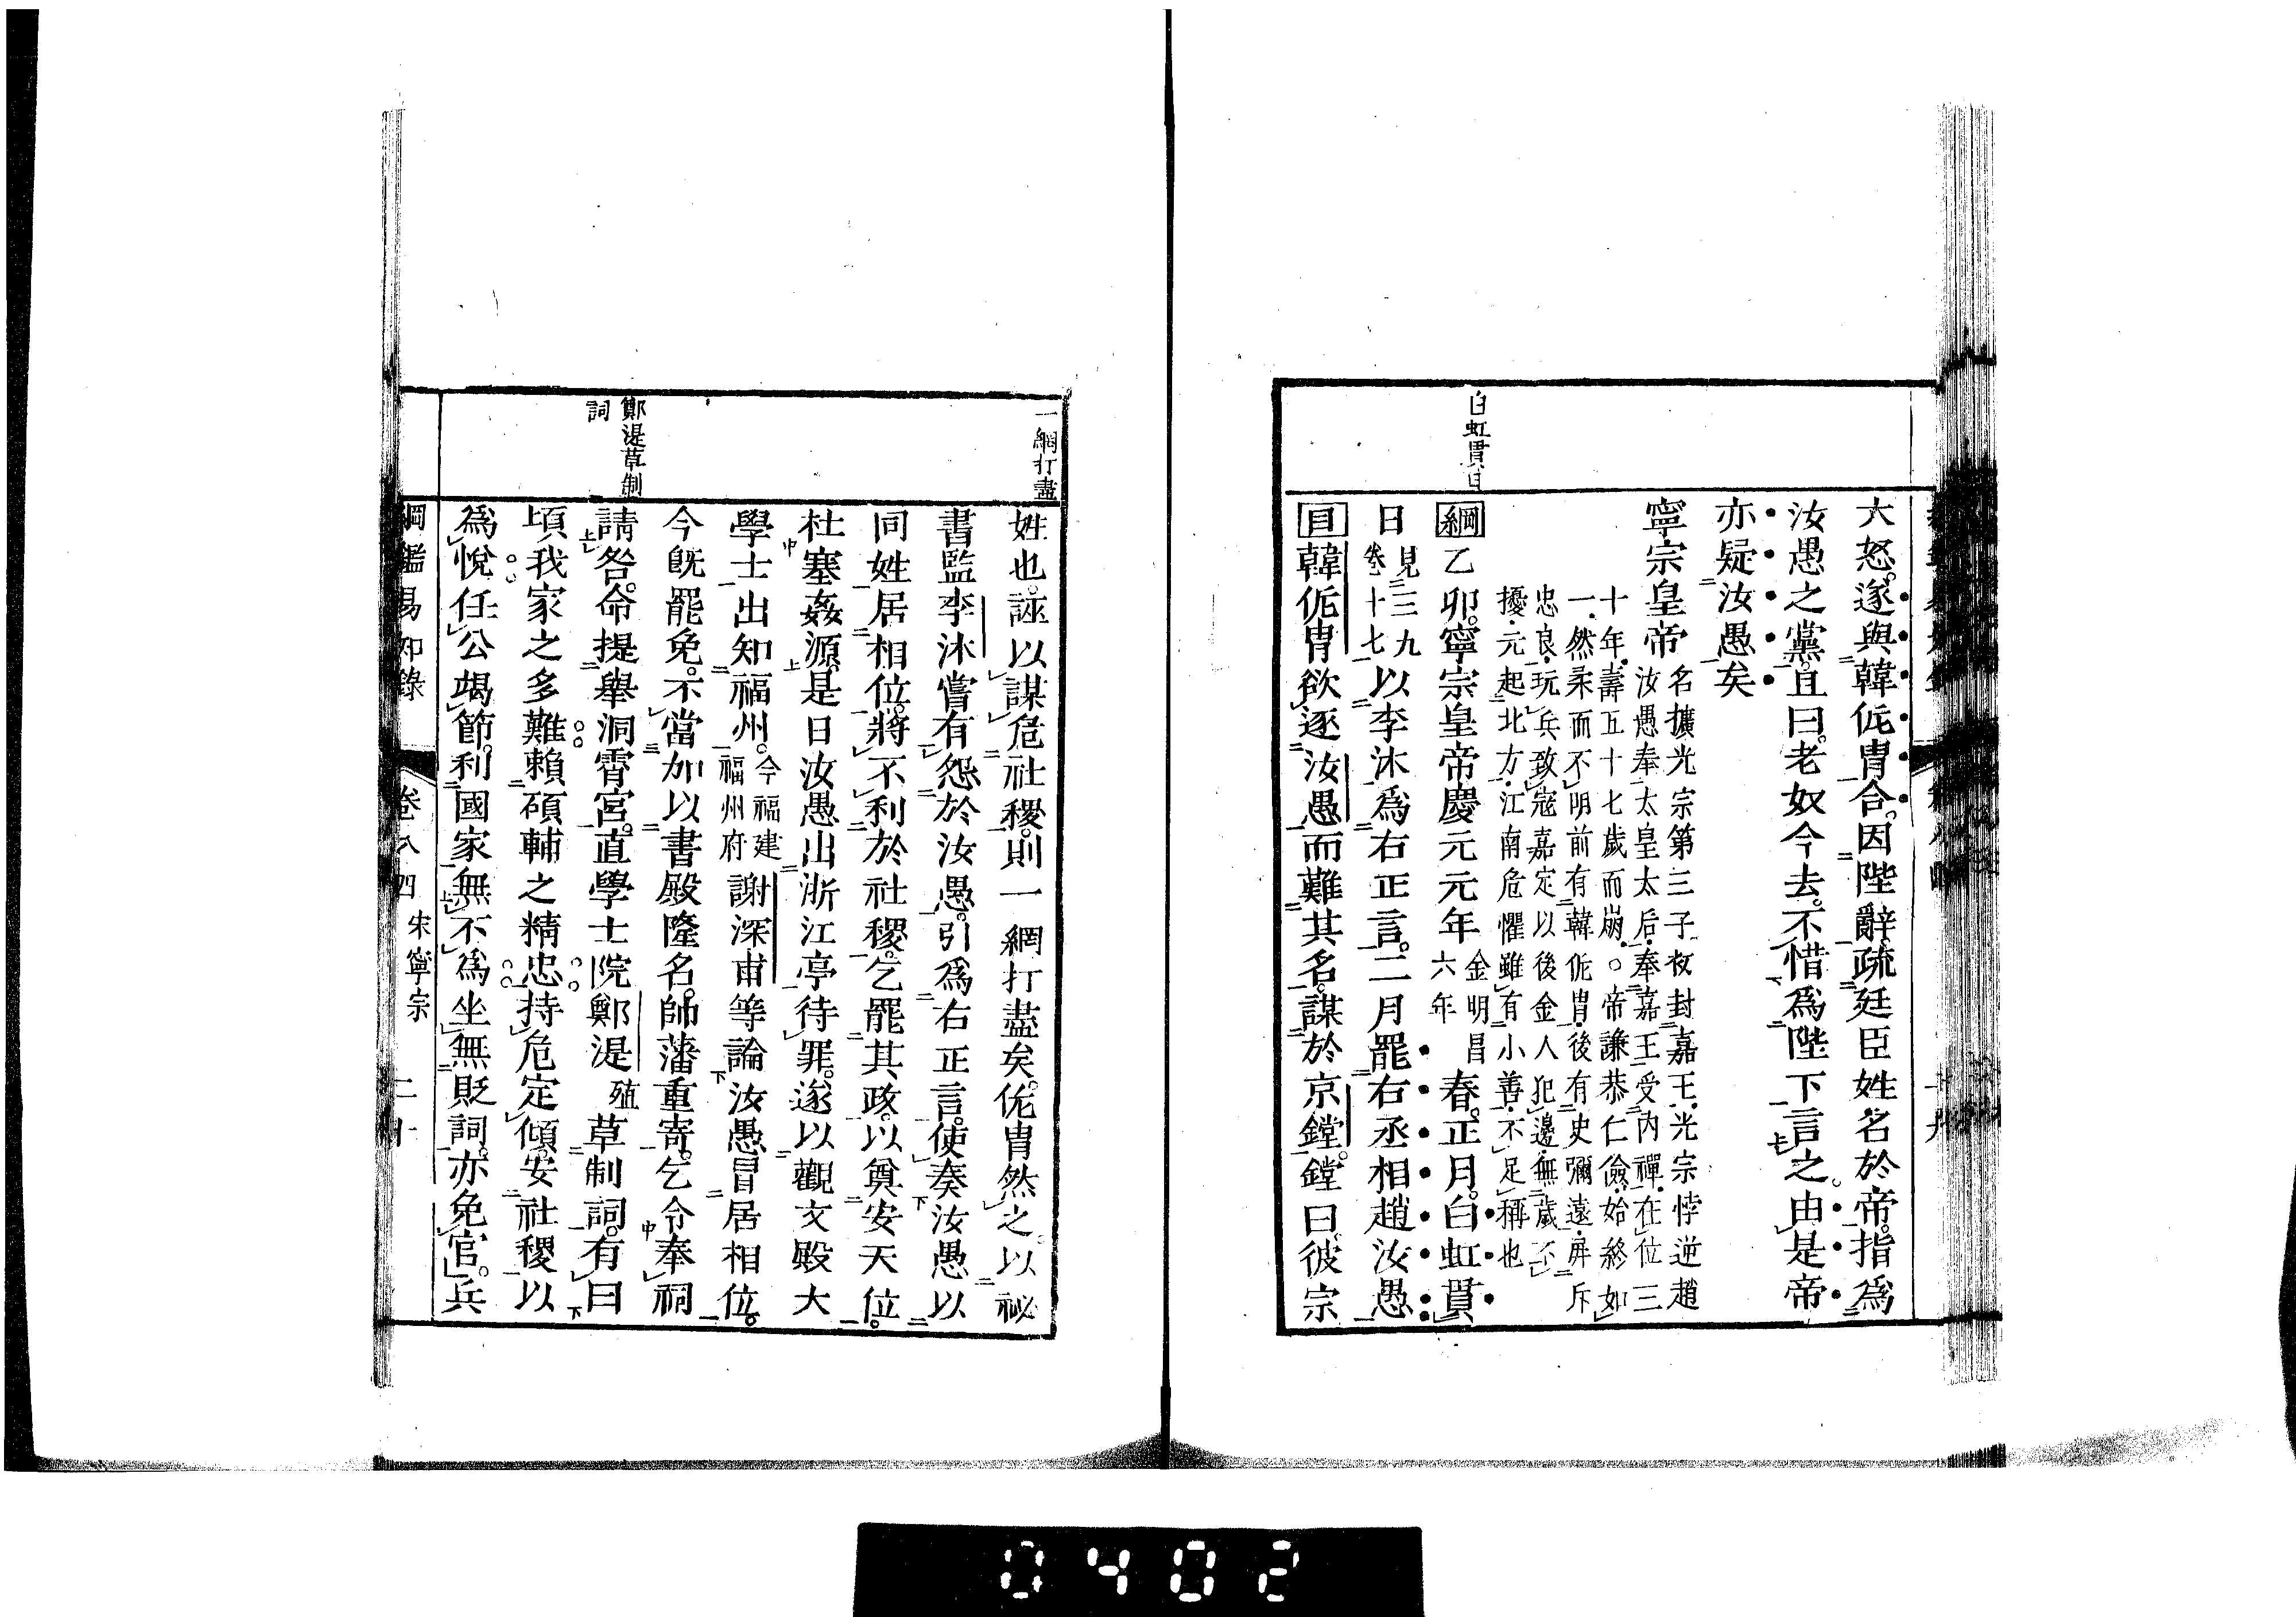 大怒。遂與韓侂冑合。因陛辭。疏廷臣姓名於帝。指爲
汝愚之黨。且曰。老奴今去。不惜爲陛下言之。由是帝
亦疑汝愚矣
寧宗皇帝
名擴光宗第三子初封嘉王.光宗悖逆趙
汝愚奉太皇太后.奉嘉王受內禪.在位三
十年.壽五十七歲而崩.○帝謙恭仁儉.始終如
一.然柔而不明前有韓侂冑.後有史彌遠.屏斥
忠良.玩兵致寇嘉定以後金人犯邊.無歲不
擾.元起北方.江南危懼雖有小善.不足稱也
白虹貫日
綱乙卯。寧宗皇帝慶元元年
金明昌
六年
春。正月。白虹貫
日
見三九
卷十七
以李沐爲右正言。二月罷右丞相趙汝愚
目韓侂冑欲逐汝愚而難其名。謀於京鏜。鏜曰。彼宗
一網打盡
姓也。誣以謀危社稷。則一網打盡矣。侂冑然之。以祕
書監李沐嘗有怨於汝愚。引爲右正言。使奏汝愚以
同姓居相位。將不利於社稷。乞罷其政。以奠安天位。
杜塞姦源。是日汝愚出浙江亭待罪。遂以觀文殿大
學士出知福州。
今福建
福州府
謝深甫等論汝愚冒居相位。
今旣罷免。不當加以書殿隆名。帥藩重寄。乞令奉祠
鄭湜草制
詞
請咎。命提舉洞霄宮。直學士院鄭湜
殖
草制詞。有曰
頃我家之多難。賴碩輔之精忠。持危定傾。安社稷以
爲悅。任公竭節。利國家無不爲。坐無貶詞。亦免官。兵
綱鑑易知錄 卷八四 宋寧宗 二十